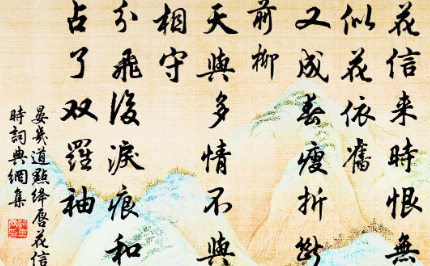 花信来時恨無
似花依舊
又成春瘦折斷
前柳
天與多情不與
相守
分飛後淚痕和
占了双羅袖
晏幾道點絳唇花信
時詞典網集